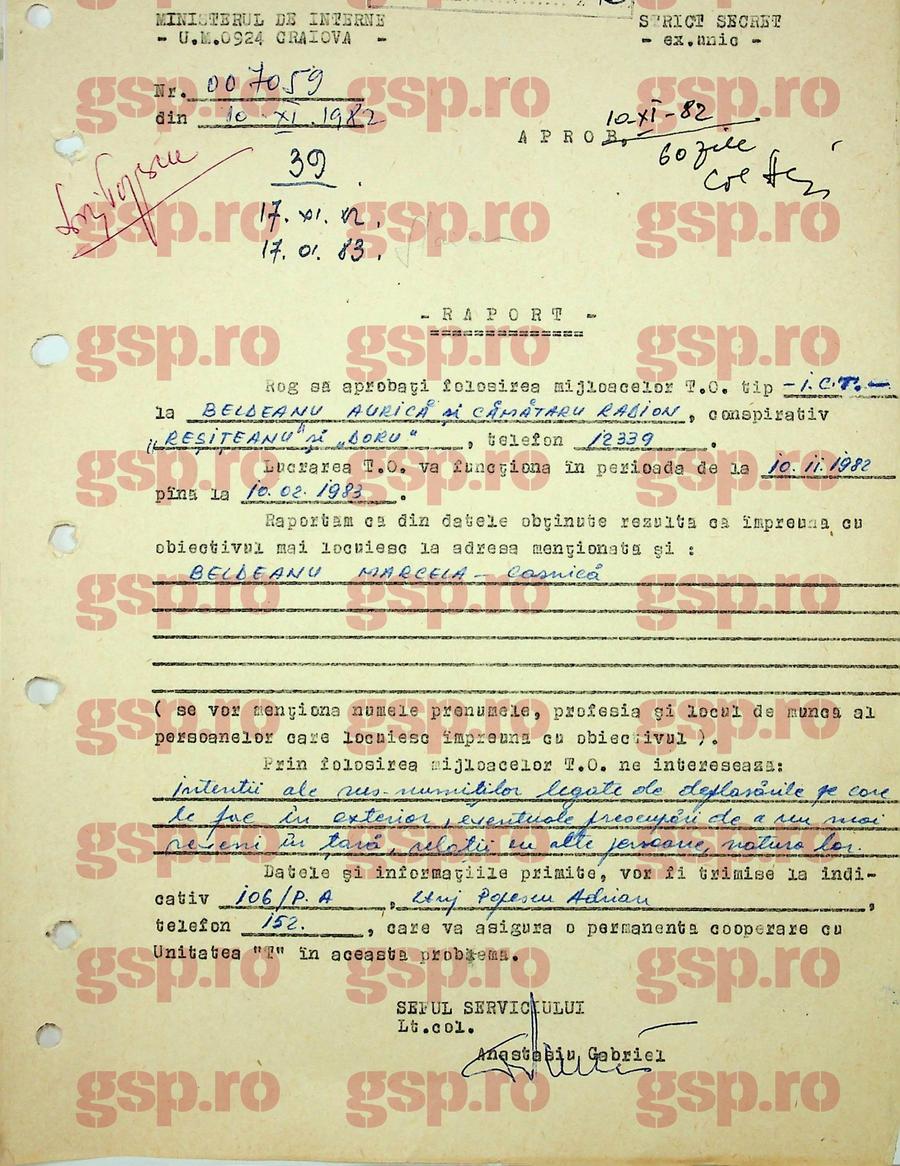 MINISTERUL DE INTERNE
- U.M.0924 CRAIOVA -
STRICT SECRET
- ex.unic -
Nr. 007059
din 10.XI.1982
A P R O B,
10-XI-82
60 zile
39
17.XI.82.
17.01.83.
- R A P O R T -
Rog să aprobaţi folosirea mijloacelor T.O. tip - I.C.T.-
la BELDEANU AURICĂ şi CĂMĂTARU RADION, conspirativ
"REŞIŢEANU" şi "DORU", telefon 12339.
Lucrarea T.O. va funcţiona în perioada de la 10.11.1982
pîna la 10.02.1983.
Raportam ca din datele obţinute rezulta ca împreuna cu
obiectivul mai locuiesc la adresa menţionata şi :
BELDEANU MARCELA - Casnică
( se vor menţiona numele prenumele, profesia şi locul de munca al
persoanelor care locuiesc împreuna cu obiectivul ).
Prin folosirea mijloacelor T.O. ne intereseaza:
intentii ale sus-numitilor legate de deplasările pe care
le fac în exterior, eventuale preocupări de a nu mai
reveni în ţară, relaţii cu alte persoane, natura lor.
Datele şi informaţiile primite, vor fi trimise la indi-
cativ 106/P.A, Popescu Adrian,
telefon 152., care va asigura o permanenta cooperare cu
Unitatea "T" în aceasta problema.
SEFUL SERVICIULUI
Lt.col.
Anastasiu Gabriel
gsp.ro gsp.ro gsp.ro
gsp.ro gsp.ro gsp.ro
gsp.ro gsp.ro gsp.ro
gsp.ro gsp.ro gsp.ro
gsp.ro gsp.ro gsp.ro
gsp.ro gsp.ro gsp.ro
gsp.ro gsp.ro gsp.ro
gsp.ro gsp.ro gsp.ro
gsp.ro gsp.ro gsp.ro